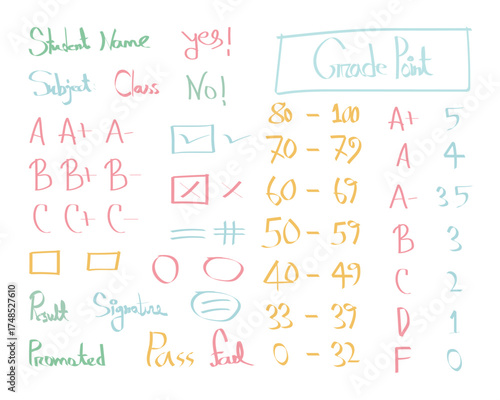 Student Name
yes!
Subject Class
No!
A A+ A-
B B+ B-
C C+ C-
Result Signature
Promoted
Pass Fail
Grade Point
80 - 100 A+ 5
70 - 79 A 4
60 - 69 A- 3.5
50 - 59 B 3
40 - 49 C 2
33 - 39 D 1
0 - 32 F 0
Adobe Stock | #1748527610
Adobe Stock